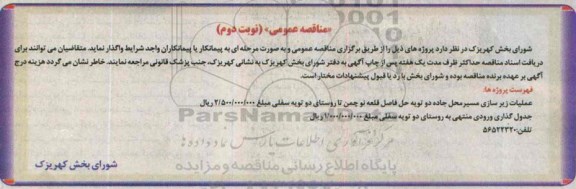 «مناقصه عمومی» (نوبت دوم)
شورای بخش کهریزک در نظر دارد پروژه های ذیل را از طریق برگزاری مناقصه عمومی و به صورت مرحله ای به پیمانکار یا پیمانکاران واجد شرایط واگذار نماید. متقاضیان می توانند برای
دریافت اسناد مناقصه حداکثر ظرف مدت یک هفته پس از چاپ آگهی به دفتر شورای بخش کهریزک به نشانی کهریزک، جنب پزشک قانونی مراجعه نمایند. خاطر نشان می گردد هزینه درج
آگهی بر عهده برنده مناقصه بوده و شورای بخش با رد یا قبول پیشنهادات مختار است.
فهرست پروژه ها:
عملیات زیر سازی مسیر محل جاده دو تویه حل فاصل قلعه نو چمن تا روستای دو تویه سفلی مبلغ ۲/۵۰۰/۰۰۰/۰۰۰ ریال
جدول گذاری ورودی منتهی به روستای دو تویه سفلی مبلغ ۷۰۰/۰۰۰/۰۰۰ ریال
تلفن: ۵۶۵۲۲۳۲۰
شورای بخش کهریزک
ParsNamadData
پایگاه اطلاع رسانی مناقصه و مزایده